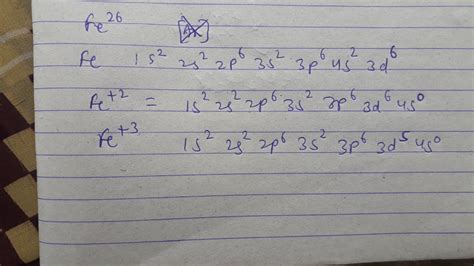 Fe²⁶
Fe 1s² 2s² 2p⁶ 3s² 3p⁶ 4s² 3d⁶
Fe⁺² = 1s² 2s² 2p⁶ 3s² 3p⁶ 3d⁶ 4s⁰
Fe⁺³ 1s² 2s² 2p⁶ 3s² 3p⁶ 3d⁵ 4s⁰